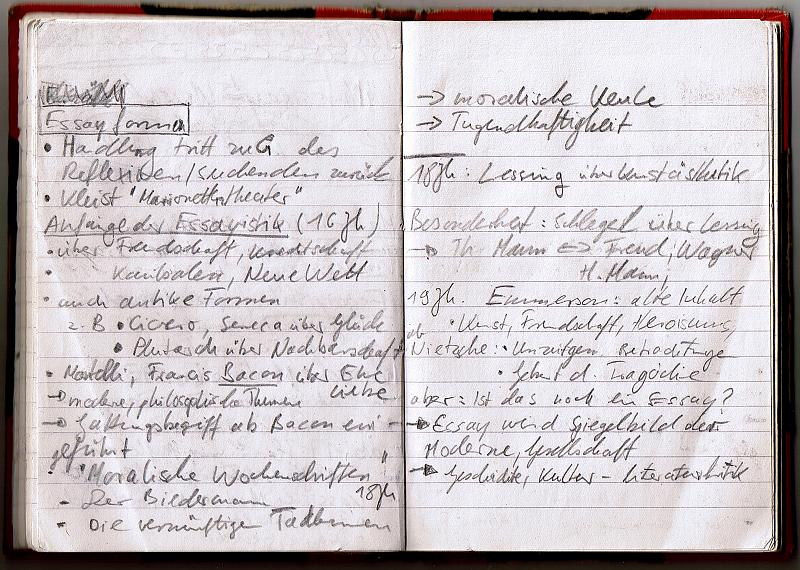 Essayformen
• Handlung tritt zuG. des
Reflexiven/suchenden zurück
• Kleist "Marionettentheater"
Anfänge der Essayistik (16 Jh)
• über Freundschaft, Knechtschaft
• Kanibalen, Neue Welt
• auch antike Formen
z. B • Cicero, Seneca über Glück
• Plutarch über Nachbarschaft
• Francis Bacon über Ehe
Liebe
→ moderne, philosophische Themen
→ Gattungsbegriff ab Bacon ein-
geführt
• "Moralische Wochenschriften"
18Jh
- Der Biedermann
- Die vernünftigen Tadlerinnen
→ moralische Keule
→ Tugendhaftigkeit
18Jh: Lessing über Kunstästhetik
Besonderheit: Schlegel über Lessing
→ Th. Mann <=> Freud, Wagner
H. Mann,
19Jh. Emmerson: alte Inhalt
• Kunst, Freundschaft, Heroismus,
ab
Nietzsche: • Unzeitgem. Betrachtunge
• Geburt d. Tragödie
aber: Ist das noch ein Essay?
→ Essay wird Spiegelbild der
Moderne, Gesellschaft
→ Geschichte, Kultur - Literaturkritik